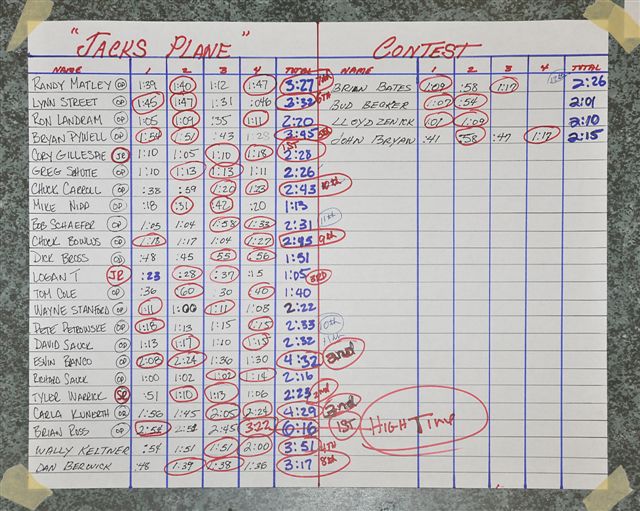 "JACKS PLANE" CONTEST
NAME 1 2 3 4 TOTAL NAME 1 2 3 4 TOTAL
RANDY MATLEY OP 1:39 1:40 1:12 1:47 3:27 7TH BRIAN BATES 1:09 :58 1:17 2:26
LYNN STREET OP 1:45 1:47 1:31 :046 3:32 6TH BUD BECKER 1:07 :54 2:01
RON LANDRAM OP 1:05 1:09 :35 1:11 2:20 LLOYD ZENICK 1:01 1:09 2:10
BRYAN PYWELL OP 1:54 1:51 :43 1:28 3:45 5TH JOHN BRYAN :41 :58 :47 1:17 2:15
CORY GILLESPIE JR 1:10 1:05 1:10 1:18 2:28 1ST
GREG SHUTE OP 1:10 1:13 1:13 1:11 2:26
CHUCK CARROLL OP :38 :59 1:20 1:23 2:43 10th
MIKE NIDA OP :18 :31 :42 :20 1:13
BOB SCHAEFER OP 1:05 1:04 1:58 1:33 2:31 11th
CHUCK BOWLUS OP 1:18 1:17 1:04 1:27 2:45 9th
DICK BROSS OP :48 :45 :55 :56 1:51
LOGAN T JR :23 :28 :37 :15 1:05 3RD
TOM COLE OP :36 :60 :30 :40 1:40
WAYNE STANFORD OP 1:11 1:00 1:11 1:08 2:22
PETE PETROWSKE OP 1:18 1:13 1:15 1:15 2:33 10th
DAVID SAUCK OP 1:13 1:17 1:10 1:15 2:32
ERWIN BANCO OP 2:08 2:24 1:36 1:30 4:32 2nd
RICHARD SAUCK OP 1:00 1:02 1:02 1:14 2:16
TYLER WARRICK :51 1:10 1:13 1:06 2:23 2nd
CARLA KUNERTH OP 1:56 1:45 2:05 2:24 4:29
BRIAN ROSS OP 2:54 2:54 2:45 3:22 6:16 1ST HIGH TIME
WALLY KELTNER :54 1:51 1:51 2:00 3:51 4TH
DAN BERWICK :48 1:39 1:38 1:36 3:17 8th